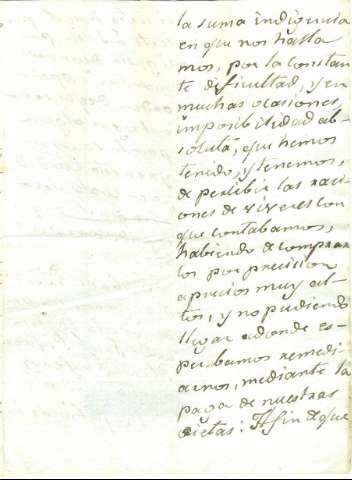 la suma indigencia
en que nos halla
mos, por la constan
te dificultad, y en
muchas ocasiones
imposibilidad ab-
soluta, que hemos
tenido, y tenemos,
de percibir las raci-
ones de viveres con
que contabamos,
habiendo de comprar
los por precision
a precios muy al-
tos, y no pudiendo
llegar adonde es-
perabamos remedi-
arnos, mediante la
paga de nuestras
dietas: A fin de que